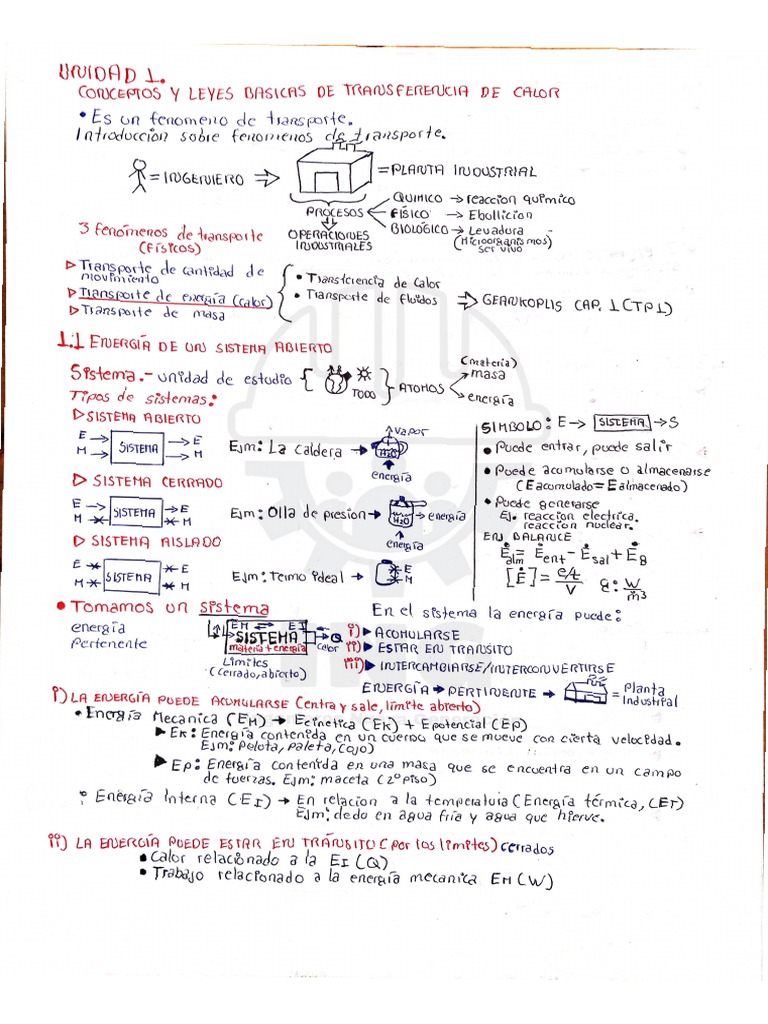 UNIDAD 1.
CONCEPTOS Y LEYES BASICAS DE TRANSFERENCIA DE CALOR
• Es un fenomeno de transporte.
Introduccion sobre fenomenos de transporte.
= INGENIERO ⇒ = PLANTA INDUSTRIAL
PROCESOS
QUIMICO → reaccion quimico
FÍSICO → Ebollicion
BIOLÓGICO → Levadura
(Microorganismos)
ser vivo
OPERACIONES
INDUSTRIALES
3 Fenómenos de transporte
(Físicos)
▷ Transporte de cantidad de
movimiento
▷ Transporte de energía (calor)
▷ Transporte de masa
• Transferencia de Calor
• Transporte de fluidos ⇒ GEANKOPLIS CAP. 1 (TP1)
1.1 ENERGÍA DE UN SISTEMA ABIERTO
Sistema.- unidad de estudio { TODO } ATOMOS
(materia)
masa
energía
Tipos de sistemas:
▷ SISTEMA ABIERTO
E → SISTEMA → E
M → → M
Ejm: La caldera → H2O
vapor
energía
▷ SISTEMA CERRADO
E → SISTEMA → E
M M
Ejm: Olla de presion → H2O → energía
energía
▷ SISTEMA AISLADO
E SISTEMA E
M M
Ejm: Termo ideal → E
M
SIMBOLO: E → SISTEMA → S
• Puede entrar, puede salir
• Puede acumularse o almacenarse
(E acumulado = E almacenado)
• Puede generarse
Ej. reaccion electrica.
reaccion nuclear.
EN BALANCE
Ėalm = Ėent - Ėsal + Ėg
[Ė] = e/t / V g: W / m³
• Tomamos un sistema
energía
Pertenente
EM ⇄ EI
SISTEMA
materia + energía
Q
calor
Límites
(cerrado, abierto)
En el sistema la energía puede:
i) ▶ ACUMULARSE
ii) ▶ ESTAR EN TRANSITO
iii) ▶ INTERCAMBIARSE/INTERCONVERTIRSE
ENERGÍA → PERTINENTE → = Planta
Industrial
i) LA ENERGÍA PUEDE ACUMULARSE (entra y sale, límite abierto)
• Energía Mecanica (EM) → Ecinetica (EK) + Epotencial (EP)
▶ EK: Energía contenida en un cuerpo que se mueve con cierta velocidad.
Ejm: Pelota, paleta, (ajo)
▶ EP: Energía contenida en una masa que se encuentra en un campo
de fuerzas. Ejm: maceta (2º piso)
• Energía Interna (EI) → En relacion a la temperatura (Energía térmica, (ET)
Ejm: dedo en agua fría y agua que hierve.
ii) LA ENERGÍA PUEDE ESTAR EN TRÁNSITO (por los límites) cerrados
• Calor relacionado a la EI (Q)
• Trabajo relacionado a la energía mecanica EM (W)